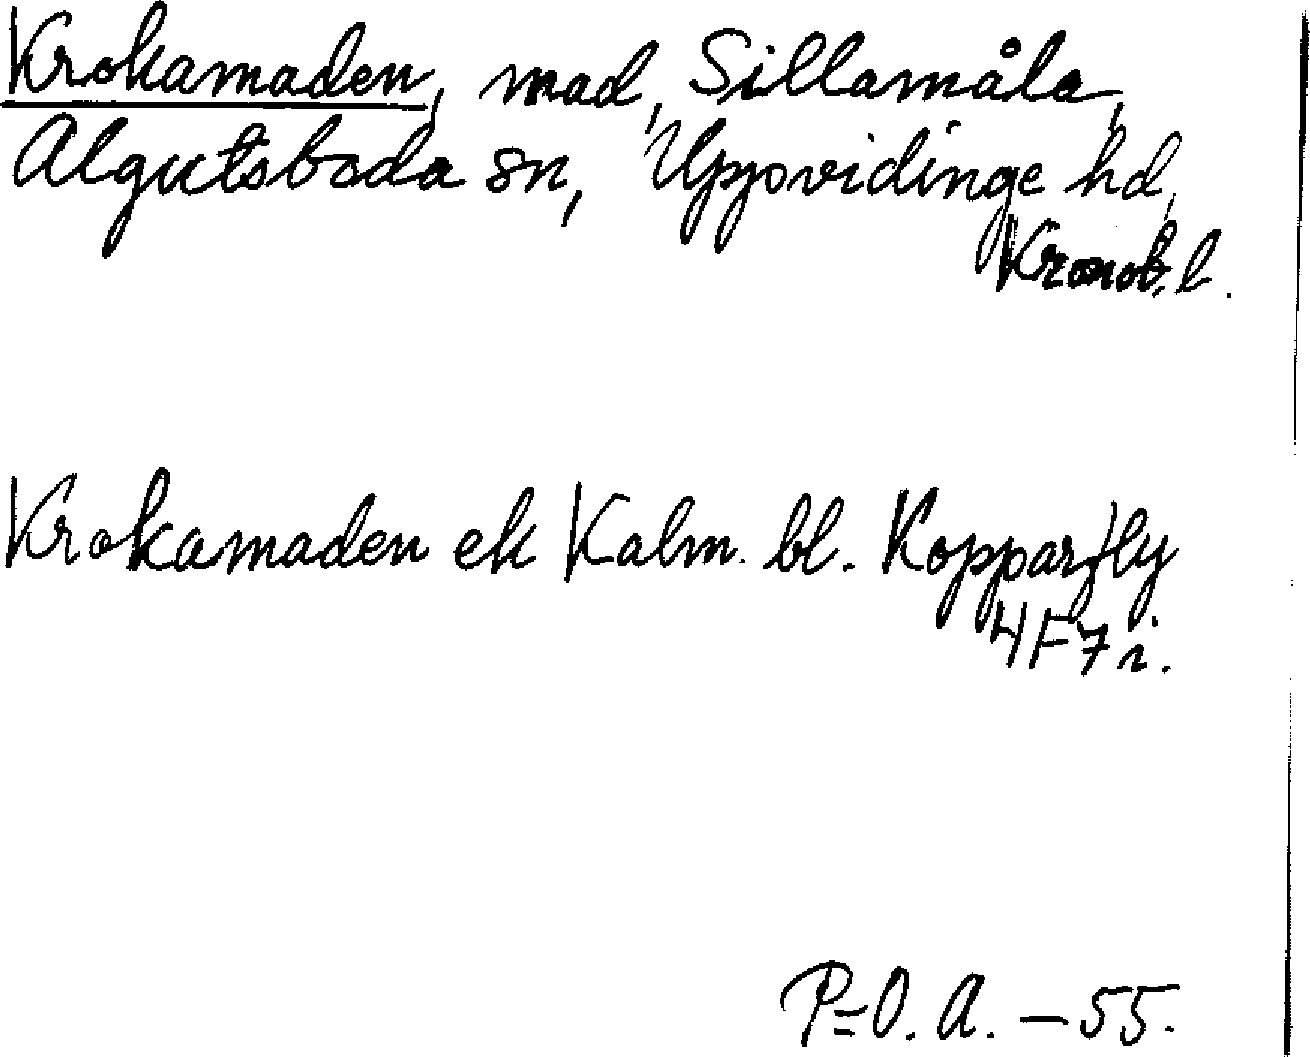 Krokamaden, mad, Sillamåla,
Algutsboda sn, Uppvidinge hd,
Kronob. l.
Krokamaden ek Kalm. bl. Kopparfly
4F7i.
P=O. A. – 55.